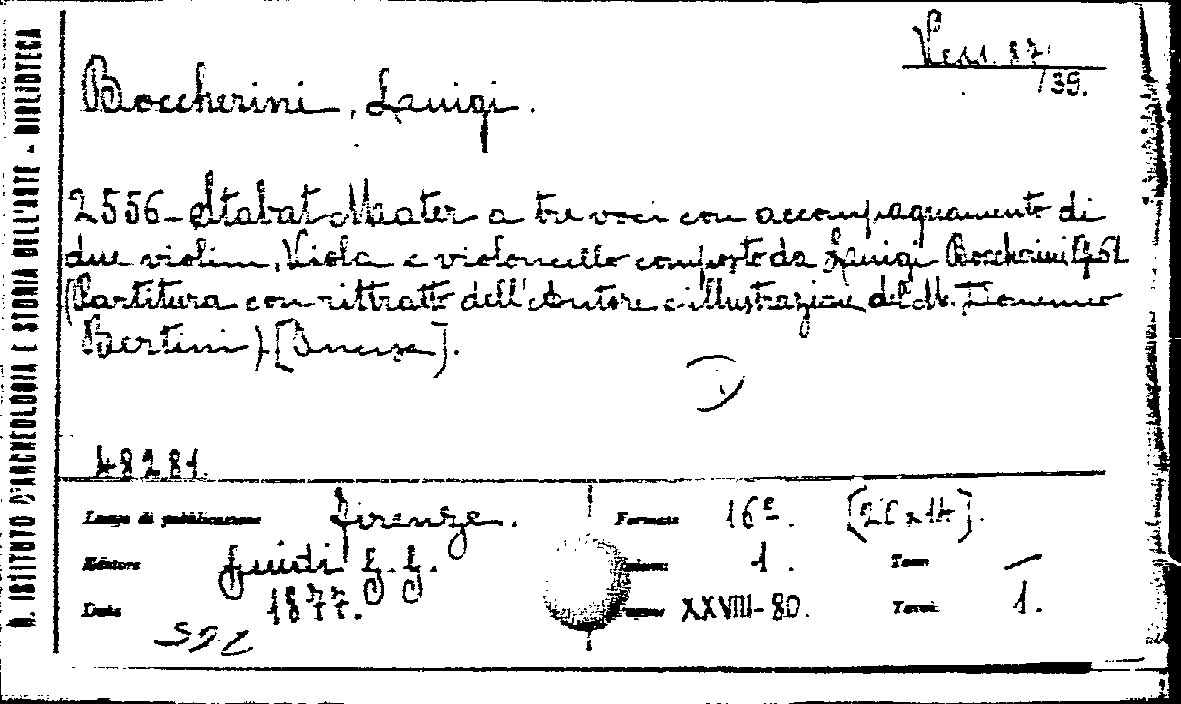 R. ISTITUTO D'ARCHEOLOGIA E STORIA DELL'ARTE - BIBLIOTECA
Vess. 87
/39.
Boccherini, Luigi.
2556 - Stabat Mater a tre voci con accompagnamento di
due violini, Viola e violoncello composto da Luigi Boccherini
(Partitura con rittratto dell'Autore e illustrazione del M. Domenico
Bertini).
48281.
Luogo di pubblicazione Firenze. Formato 16º. [20x14].
Editore Guidi G. G. 1. Tom
Data 1877. XXVIII-80. 1.